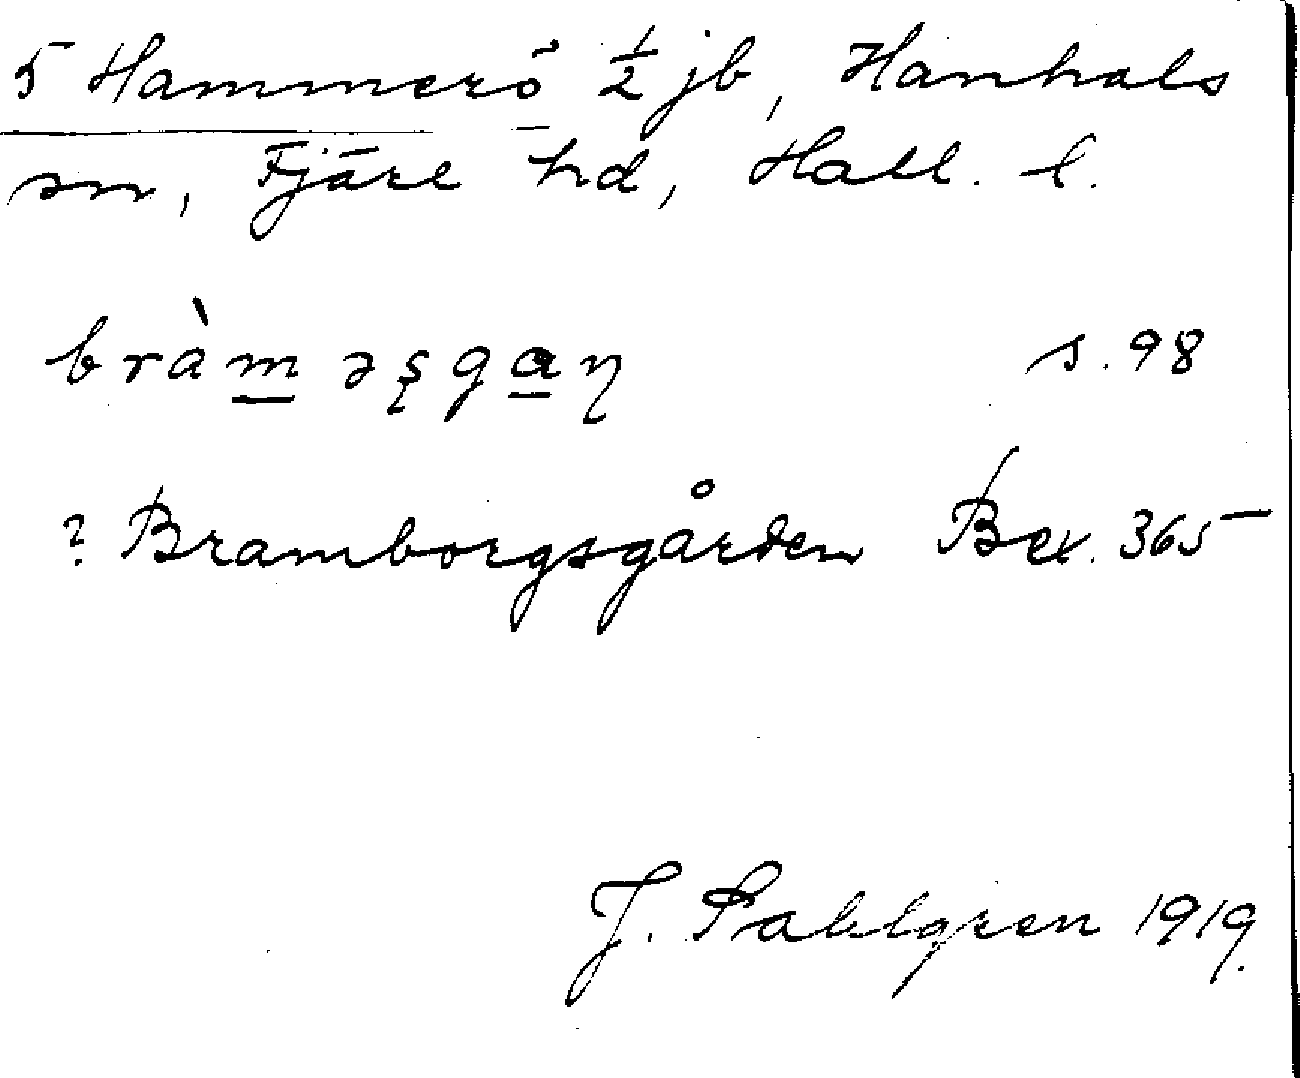 5 Hammerö ½ jb, Hanhals
sn, Fjäre hd, Hall. l.
bràm̲əʂga̲ɳ s. 98
? Bramborgsgården Bex. 365
J. Sahlgren 1919.